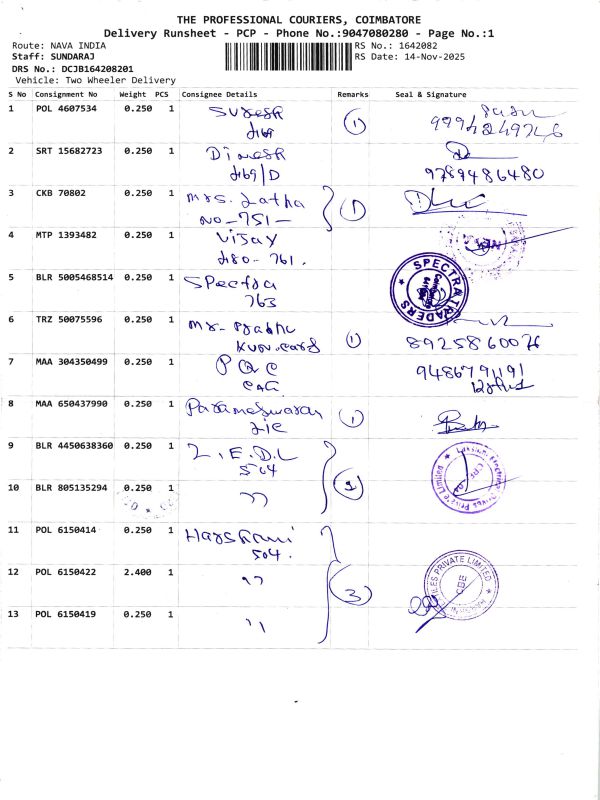 THE PROFESSIONAL COURIERS, COIMBATORE
Delivery Runsheet - PCP - Phone No.:9047080280 - Page No.:1
Route: NAVA INDIA
RS No.: 1642082
Staff: SUNDARAJ
RS Date: 14-Nov-2025
DRS No.: DCJB164208201
Vehicle: Two Wheeler Delivery
S No Consignment No Weight PCS Consignee Details Remarks Seal & Signature
1 POL 4607534 0.250 1 Suresh 1
9994249746
2 SRT 15682723 0.250 1 Dinesh
9789486480
3 CKB 70802 0.250 1 Mrs. Latha 1
No - 751 -
4 MTP 1393482 0.250 1 Vijay
761.
5 BLR 5005468514 0.250 1 Spectra
763
SPECTRA TRADERS
6 TRZ 50075596 0.250 1 Mr. Prabhu 1
7 MAA 304350499 0.250 1
9486791191
8 MAA 650437990 0.250 1 Parameswaran 1
LIC
9 BLR 4450638360 0.250 1 L.E.D.L
504
Private Limited
10 BLR 805135294 0.250 1 "
11 POL 6150414 0.250 1 Harshani
504.
12 POL 6150422 2.400 1 " 3
PRIVATE LIMITED
CBE
13 POL 6150419 0.250 1 "